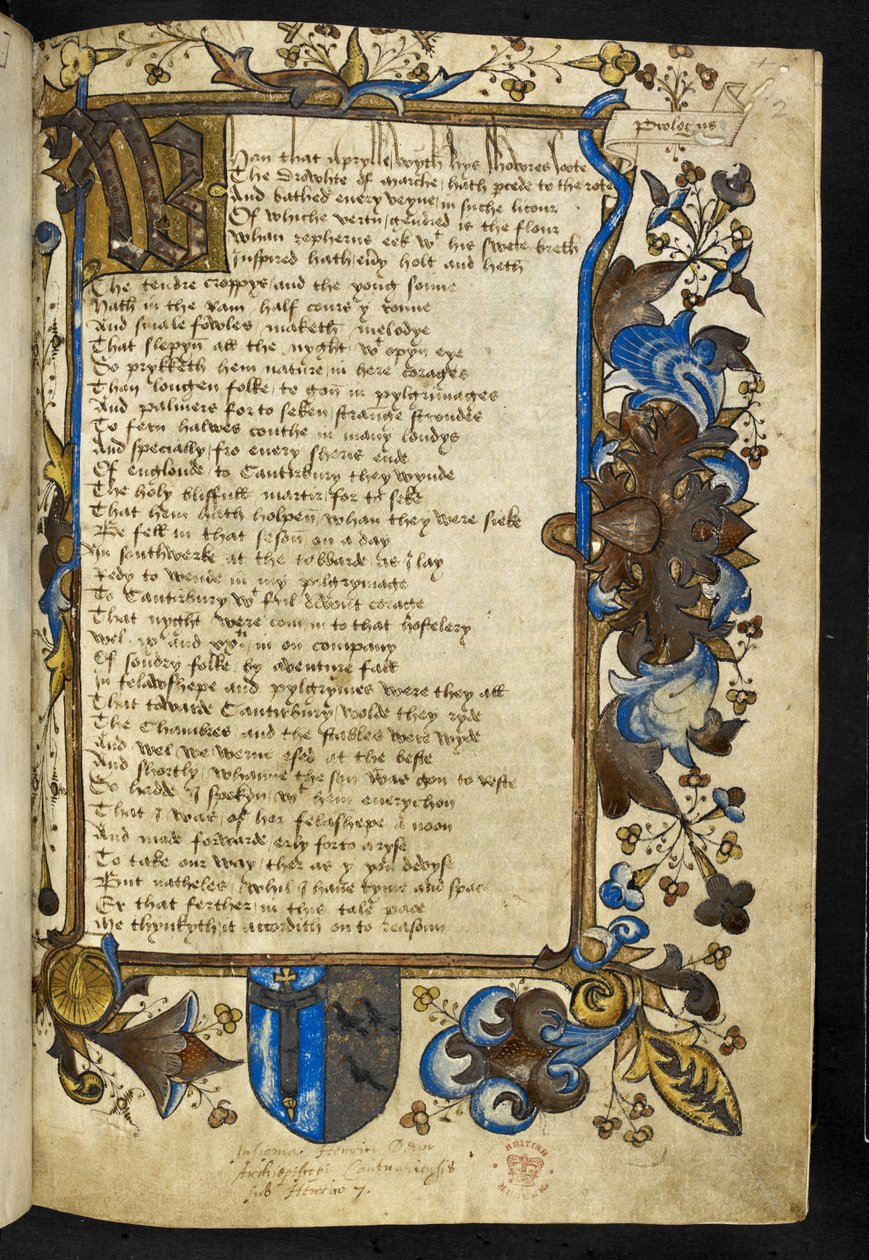 Prologus
2
Whan that Aprylle wyth hys showres soote
The drowhte of marche / hath pcede to the rote
And bathed euery veyne / in suche licour
Of whiche vertu / gendred is the flour
Whan zepherus eek wt his swete breth
Inspired hath / euy holt and heth
The tendre croppys / and the yong sonne
Hath in the Ram / half cours y ronne
And smale fowles / maketh melodye
That slepyn all the nyght / wt opyn eye
So prykketh hem nature / in here corages
Than longen folke / to gon in pylgrimages
And palmers for to seken / strange strondes
To fern halwes couthe in many londys
And specially / fro euery sheris ende
Of englonde / to Cantirbury they wynde
The holy blisfull martir / for to seke
That hem hath holpen / whan they were sieke
Be fell in that seson / on a day
In southwerke at the tabbarde / as I lay
Redy to wende in my pilgrymage
To Cantirbury wt ful devout corage
That nyght were com / in to that hostelery
Wel . ix and xxti / in on company
Of sondry folke / by aventure fall
In felawshepe and pylgrymes were they all
That towarde Cantirbury / wolde they ryde
The Chambres / and the stables were wyde
And wel we werne esed at the beste
And shortly / whanne the son was gon to reste
So hadde I spekyn / wt hem euerychon
That I was / of her felashepe a noon
And made forwarde / erly for to aryse
To take our way / ther as y you devyse
But natheles / whil I haue tyme and space
Er that ferther / in this tale pace
Me thynkyth / it accordith on to reasonn
Insignia Henrici Dean
Archiepiscopi Cantuariensis
sub Henrico 7.
BRITISH
MUSEUM